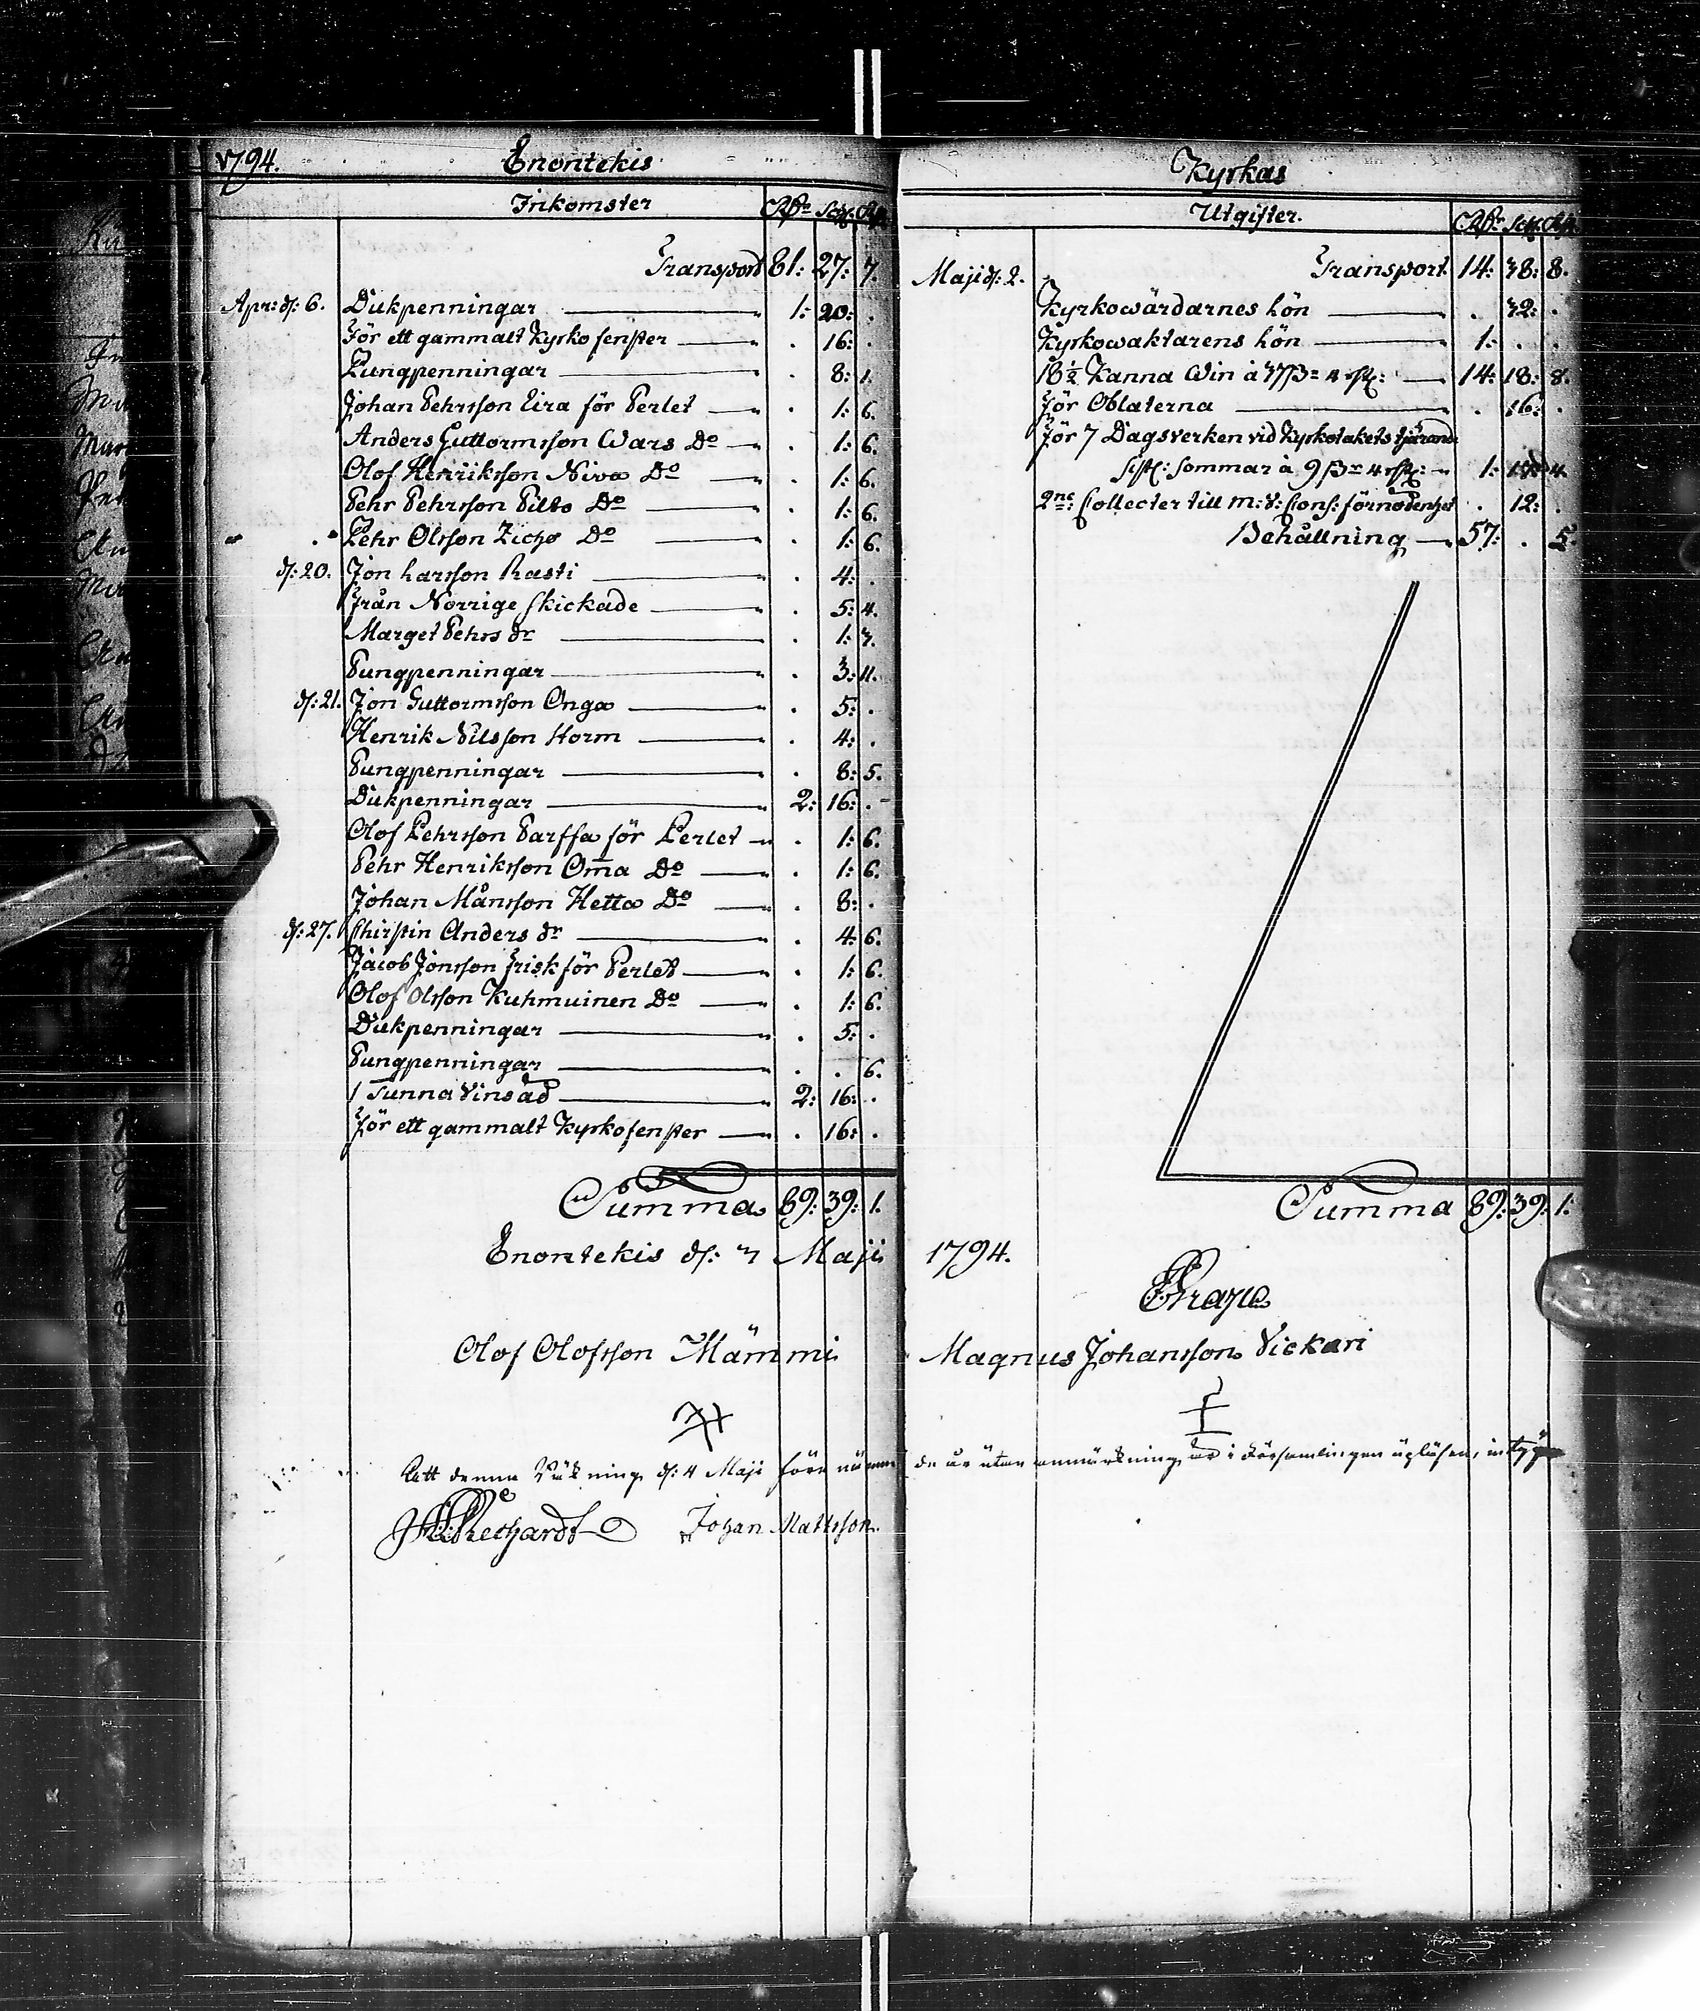 1794. Enontekis
Inkomster Rdr Sch. Rst.
Transport 81: 27: 7.
Apr: d: 6. Dukpenningar 1: 20: .
För ett gammalt Kyrkofenster . 16: .
Pungpenningar . 8: 1.
Johan Pehrsson Eira för Perlet . 1: 6.
Anders Guttormsson Wars Do . 1: 6.
Olof Henriksson Niva Do . 1: 6.
Pehr Pehrsson Pilto Do . 1: 6.
Pehr Olsson Do . 1: 6.
d: 20. Jon Larsson Rasti . 4: .
Från Norrige skickade . 5: 4.
Marget Pehrs dr . 1: 7.
Pungpenningar . 3: 11.
d: 21. Jon Guttormsson Onga . 5: .
Henrik Nilsson Storm . 4: .
Pungpenningar . 8: 5.
Dukpenningar 2: 16: .
Olof Pehrsson Parffa för Perlet . 1: 6.
Pehr Henriksson Om̄a Do . 1: 6.
Johan Månsson Hetta Do . 8: .
d: 27. Chirstin Anders dr . 4: 6.
Jacob Jönsson Frisk för Perlet . 1: 6.
Olof Olsson Kuhmuinen Do . 1: 6.
Dukpenningar . 5: .
Pungpenningar . . 6.
1 Tunna Vinsäd 2: 16: .
För ett gammalt Kyrkofenster . 16: .
Summa 89: 39: 1.
Kyrkas
Utgifter. Rdr Sch. Rst.
Maji d: 2. Transport 14: 38: 8.
Kyrkowärdarnes Lön . 32: .
Kyrkowaktarens Lön 1: . .
18½ Kanna Win à 14: 18: 8.
För Oblaterna . 16: .
För 7 Dagsverken vid Kyrkotakets tjärande
sistl: sommar à 9 1: 4.
2ne: Collecter till förnödenhet . 12: .
Behållning 57: . 5.
Summa 89: 39: 1:
Enontekis d: 3 Maji 1794.
Olof Olofsson Mämmi Magnus Johansson Vickari
Att denna Räkning d: 4 Maji förenämnde år utan anmärkningar i Församlingen upläsen, intyga
Johan Mattsson.